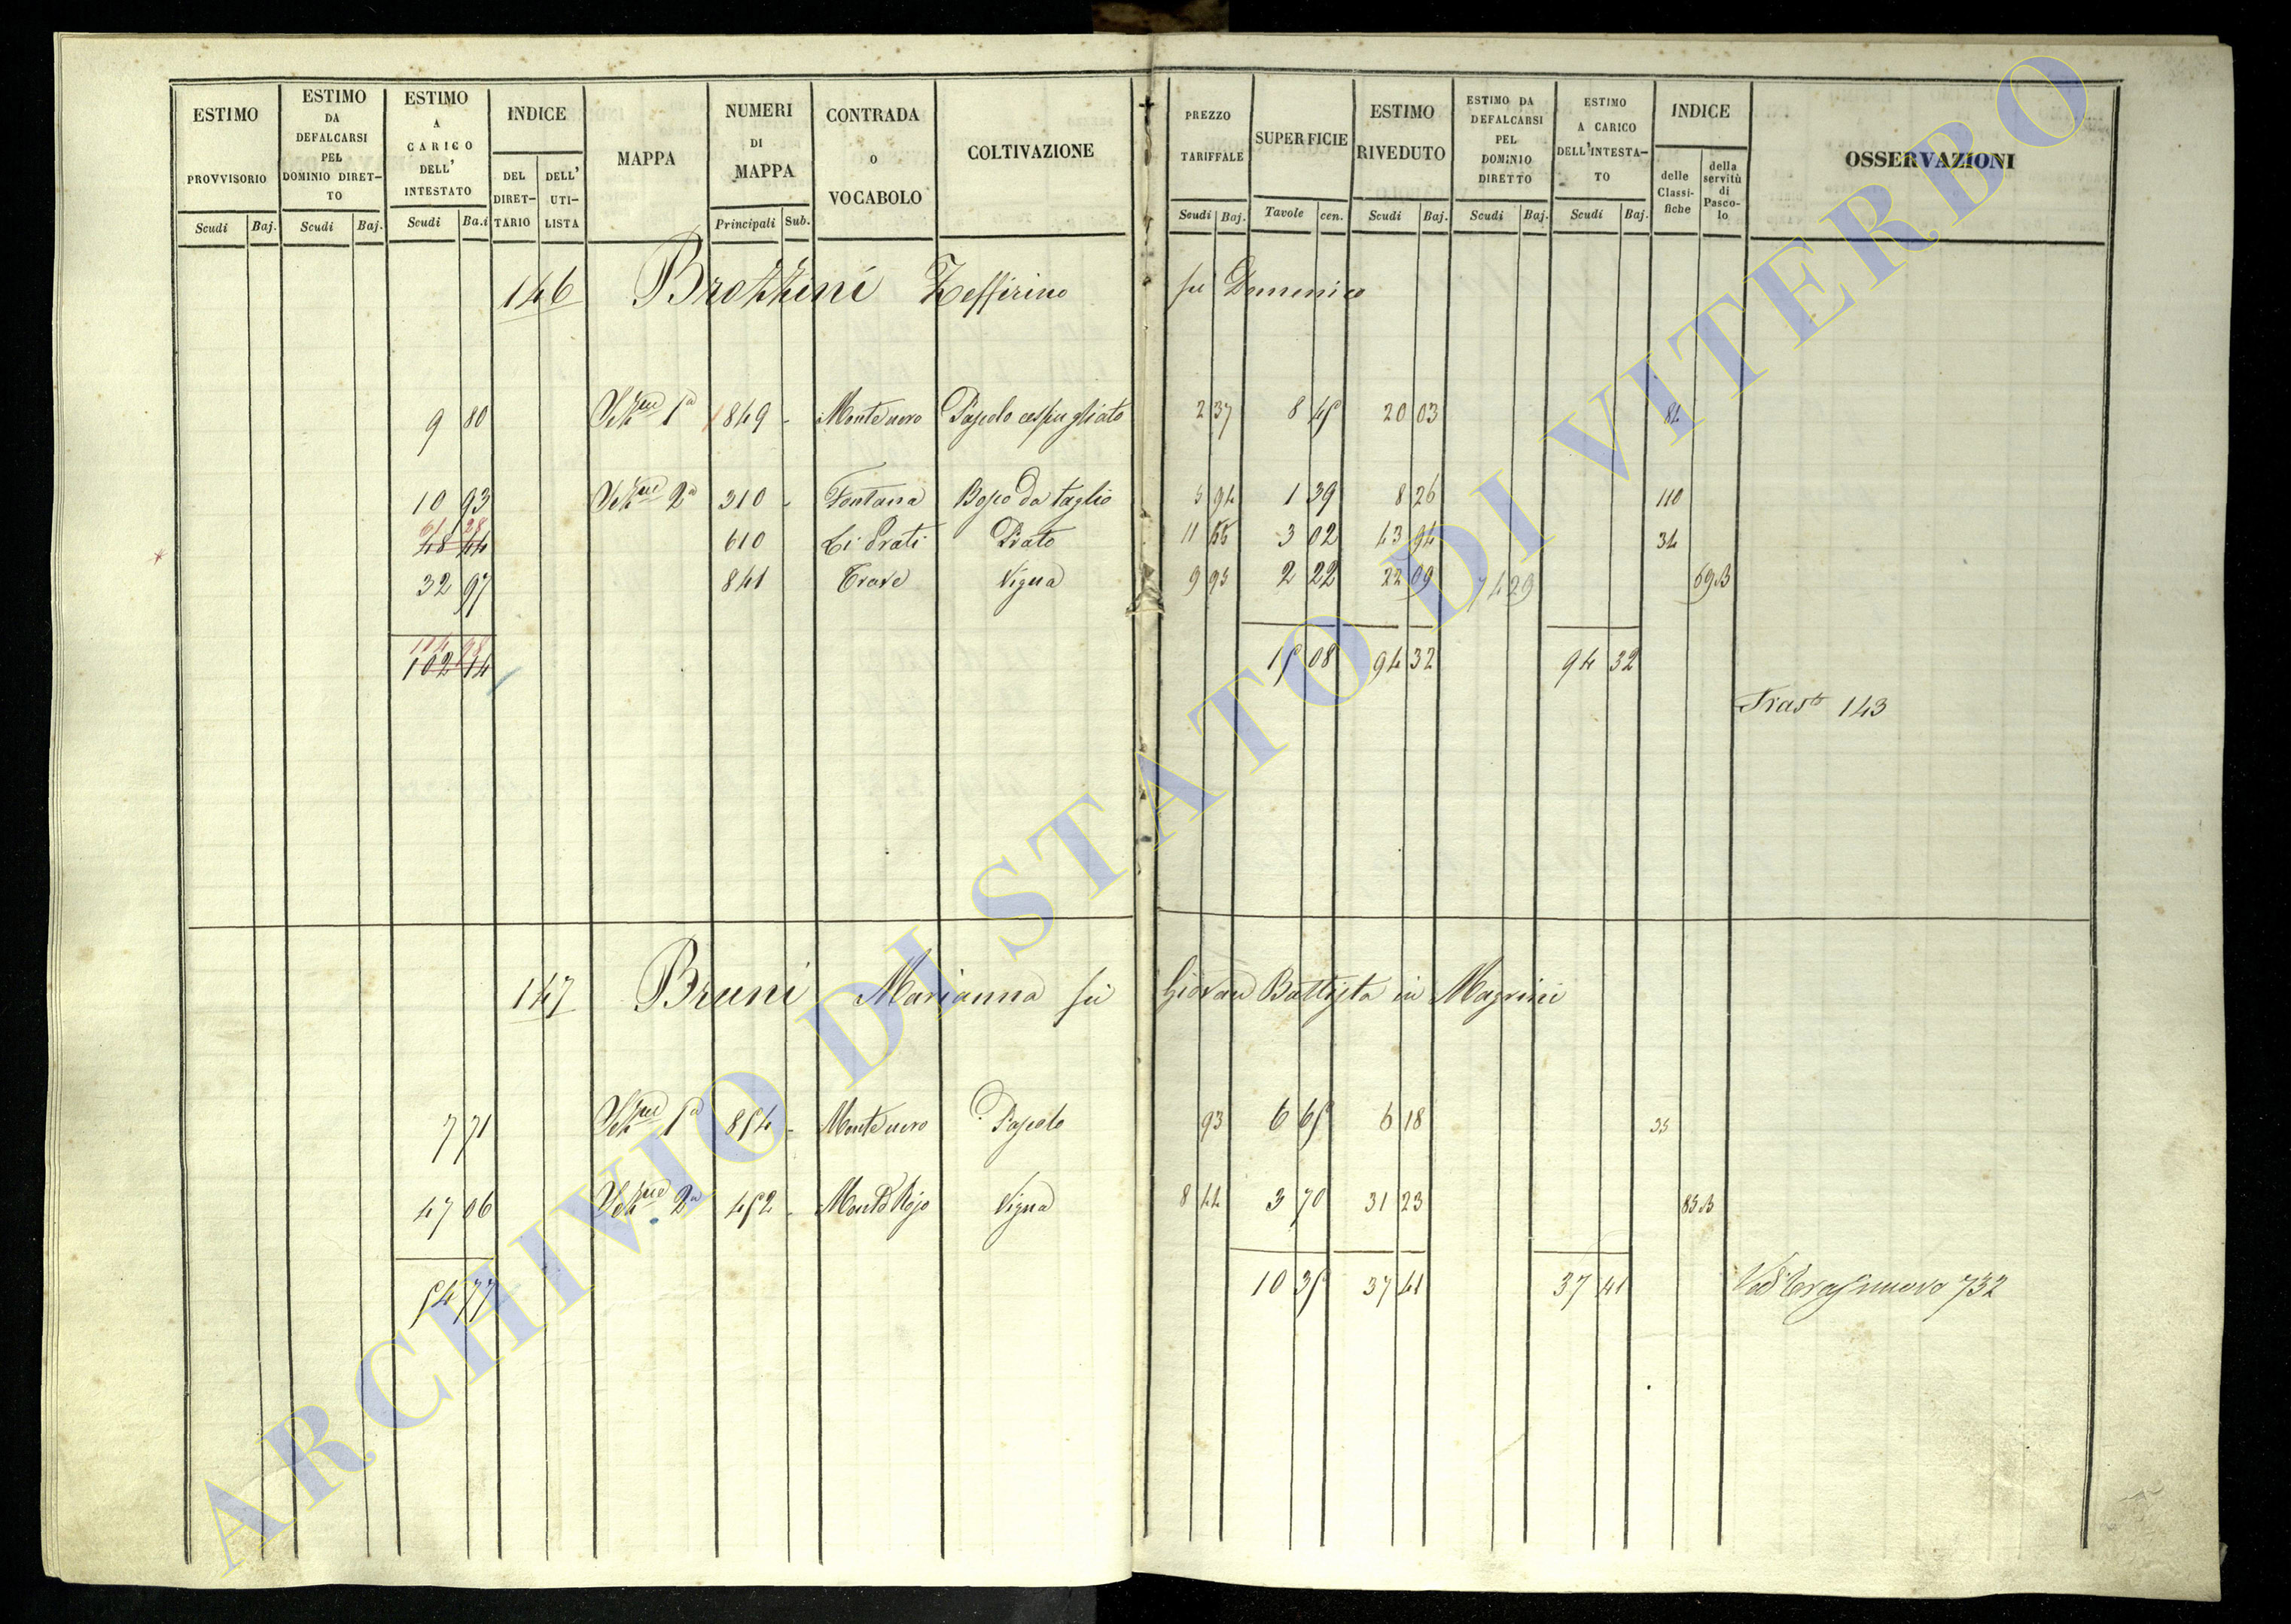 ESTIMO PROVVISORIO
Scudi Baj.
ESTIMO DA DEFALCARSI PEL DOMINIO DIRETTO
Scudi Baj.
ESTIMO A CARICO DELL' INTESTATO
Scudi Ba.i
INDICE
DEL DIRETTARIO
DELL' UTILISTA
MAPPA
NUMERI DI MAPPA
Principali Sub.
CONTRADA O VOCABOLO
COLTIVAZIONE
PREZZO TARIFFALE
Scudi Baj.
SUPERFICIE
Tavole cen.
ESTIMO RIVEDUTO
Scudi Baj.
ESTIMO DA DEFALCARSI PEL DOMINIO DIRETTO
Scudi Baj.
ESTIMO A CARICO DELL'INTESTATO
Scudi Baj.
INDICE
delle Classifiche
della servitù di Pascolo
OSSERVAZIONI
146 Brozzini Zeffirino fu Domenico
9 80 Sezne 1a 849 - Montenero Pascolo cespugliato 2 37 8 45 20 03 84
10 93 Sezne 2a 310 - Fontana Bosco da taglio 5 94 1 39 8 26 110
61 28
48 44 610 Li Prati Prato 3 02 43 94 34
32 97 841 Vigna 9 95 2 22 22 09 7429 69B
114 98
102 14 15 08 94 32 94 32
Trasto 143
147 Bruni Marianna fu Giovan Battista in Magrini
7 71 Sezne 1a 854 - Montenero Pascolo 93 6 65 6 18 35
47 06 Sezne 2a 452 - Vigna 8 44 3 70 31 23 85B
54 77 10 35 37 41 37 41 732
ARCHIVIO DI STATO DI VITERBO